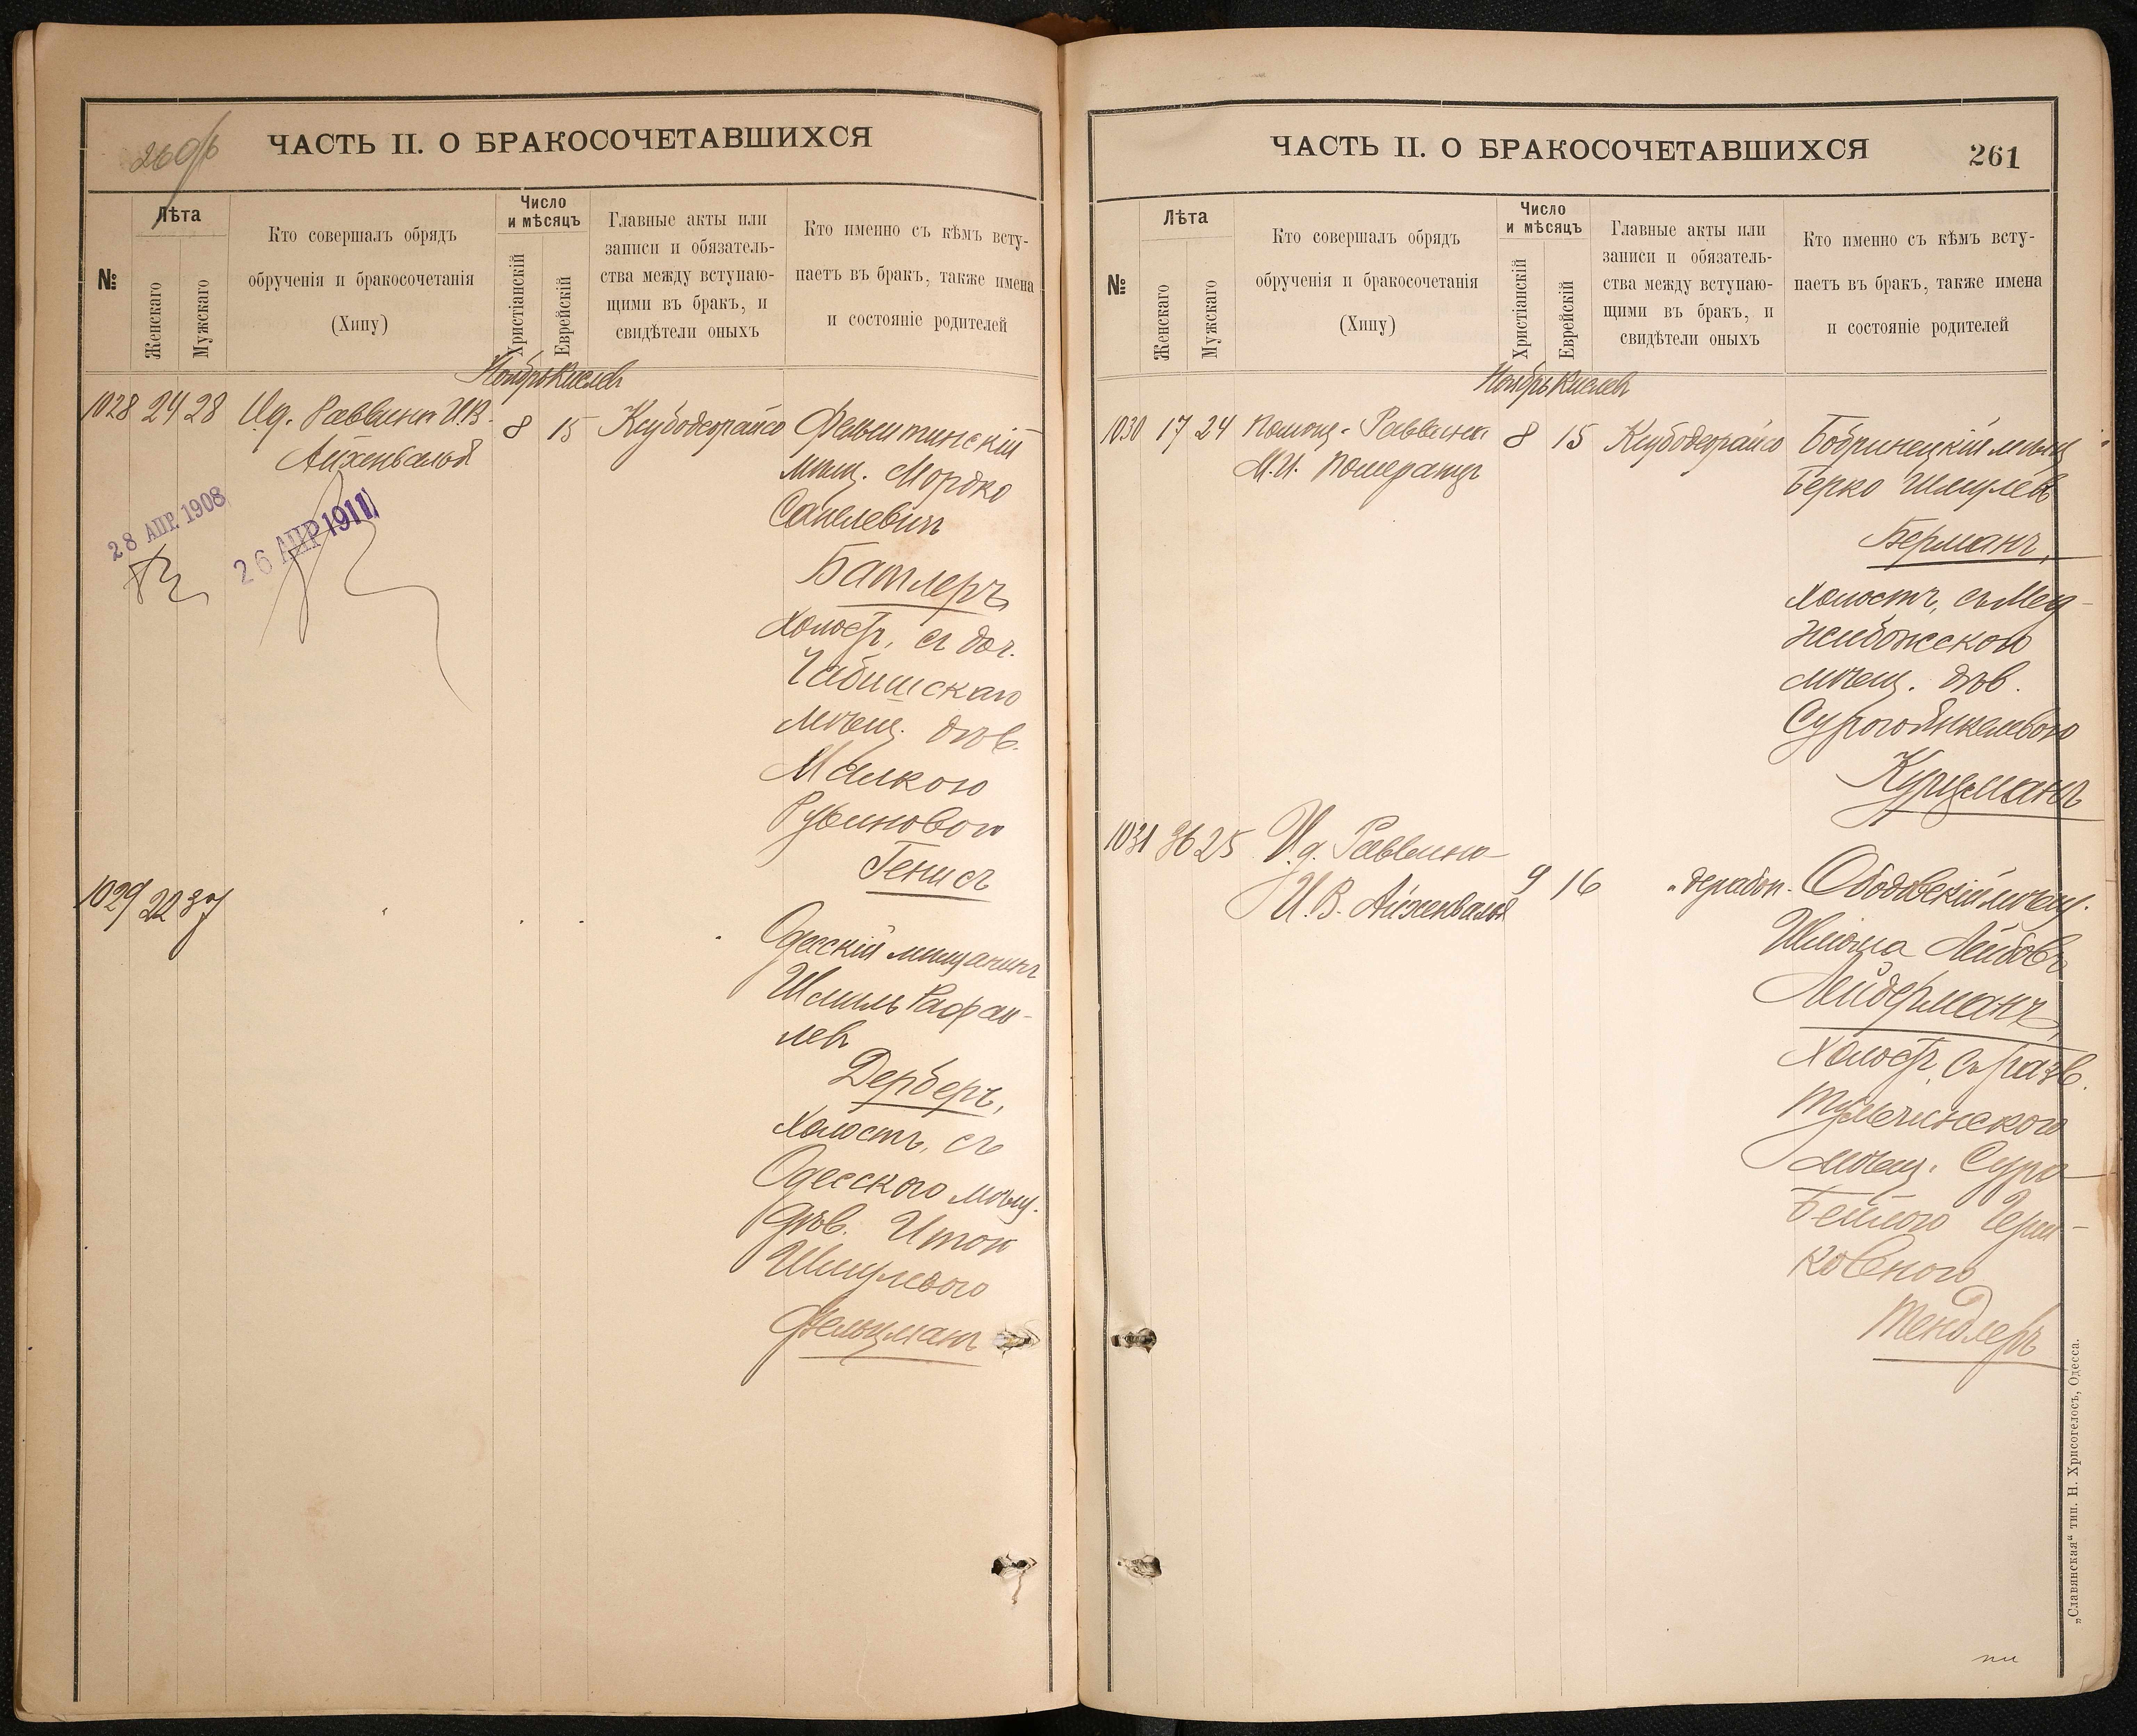 260/б
ЧАСТЬ II. О БРАКОСОЧЕТАВШИХСЯ
№
Лѣта
Женскаго
Мужскаго
Кто совершалъ обрядъ
обрученія и бракосочетанія
(Хипу)
Число
и мѣсяцъ
Христіанскій
Еврейскій
Главные акты или
записи и обязатель-
ства между вступаю-
щими въ бракъ, и
свидѣтели оныхъ
Кто именно съ кѣмъ всту-
паетъ въ бракъ, также имена
и состояніе родителей
Ноябрь Кислев
1028 24 28 Ид. Раввина И.В.
Айхенвальд
8 15
Фельштинскій
мѣщ. Мордко
Батлеръ,
холостъ, съ доч.
мѣщ. дѣв.
Малкою
Рувиновою
Генисъ
28 АПР. 1908
26 АПР 1911
1029 22 37
Одесскій мѣщанинъ
Шмиль Рафаи-
лев
Дерберъ,
холостъ, съ
Одесскою мѣщ.
дѣв. Итою
Шмулевою
Фельцманъ
ЧАСТЬ II. О БРАКОСОЧЕТАВШИХСЯ
261
№
Лѣта
Женскаго
Мужскаго
Кто совершалъ обрядъ
обрученія и бракосочетанія
(Хипу)
Число
и мѣсяцъ
Христіанскій
Еврейскій
Главные акты или
записи и обязатель-
ства между вступаю-
щими въ бракъ, и
свидѣтели оныхъ
Кто именно съ кѣмъ всту-
паетъ въ бракъ, также имена
и состояніе родителей
Ноябрь Кислев
1030 17 24 Помощ. Раввина
М.И. Померанцъ
8 15
Бобринецкій мѣщ
Берко Шмулев
Берманъ,
холостъ, съ Мед-
жибожскою
мѣщ. дѣв.
Сурою Янкелевою
Курцманъ
1031 36 25 И.д. Раввина
И.В. Айхенвальд
9 16
Ободовскій мѣщ.
Шлёма Лейбовъ
Лейдерманъ,
холостъ, съ разв.
Тульчинскою
мѣщ. Сурою
Бейлою Герш-
ковною
Тендлеръ
„Славянская“ тип. Н. Хрисогелосъ, Одесса.